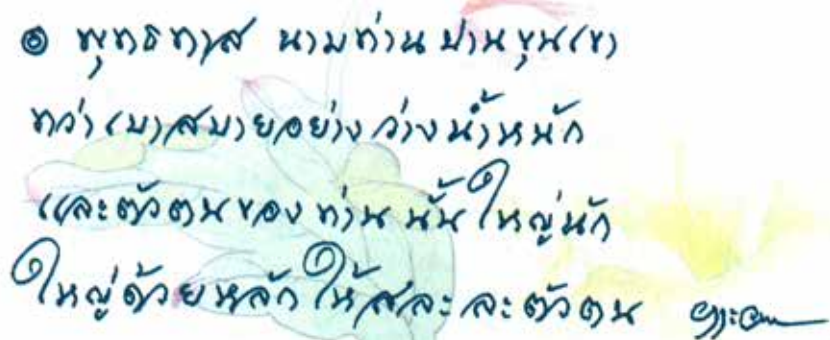 ๏ พุทธทาส นามท่าน ปานขุนเขา
ทว่าเบาสบายอย่างว่างน้ำหนัก
และตัวตนของท่านนั้นใหญ่นัก
ใหญ่ด้วยหลักให้สละละตัวตน